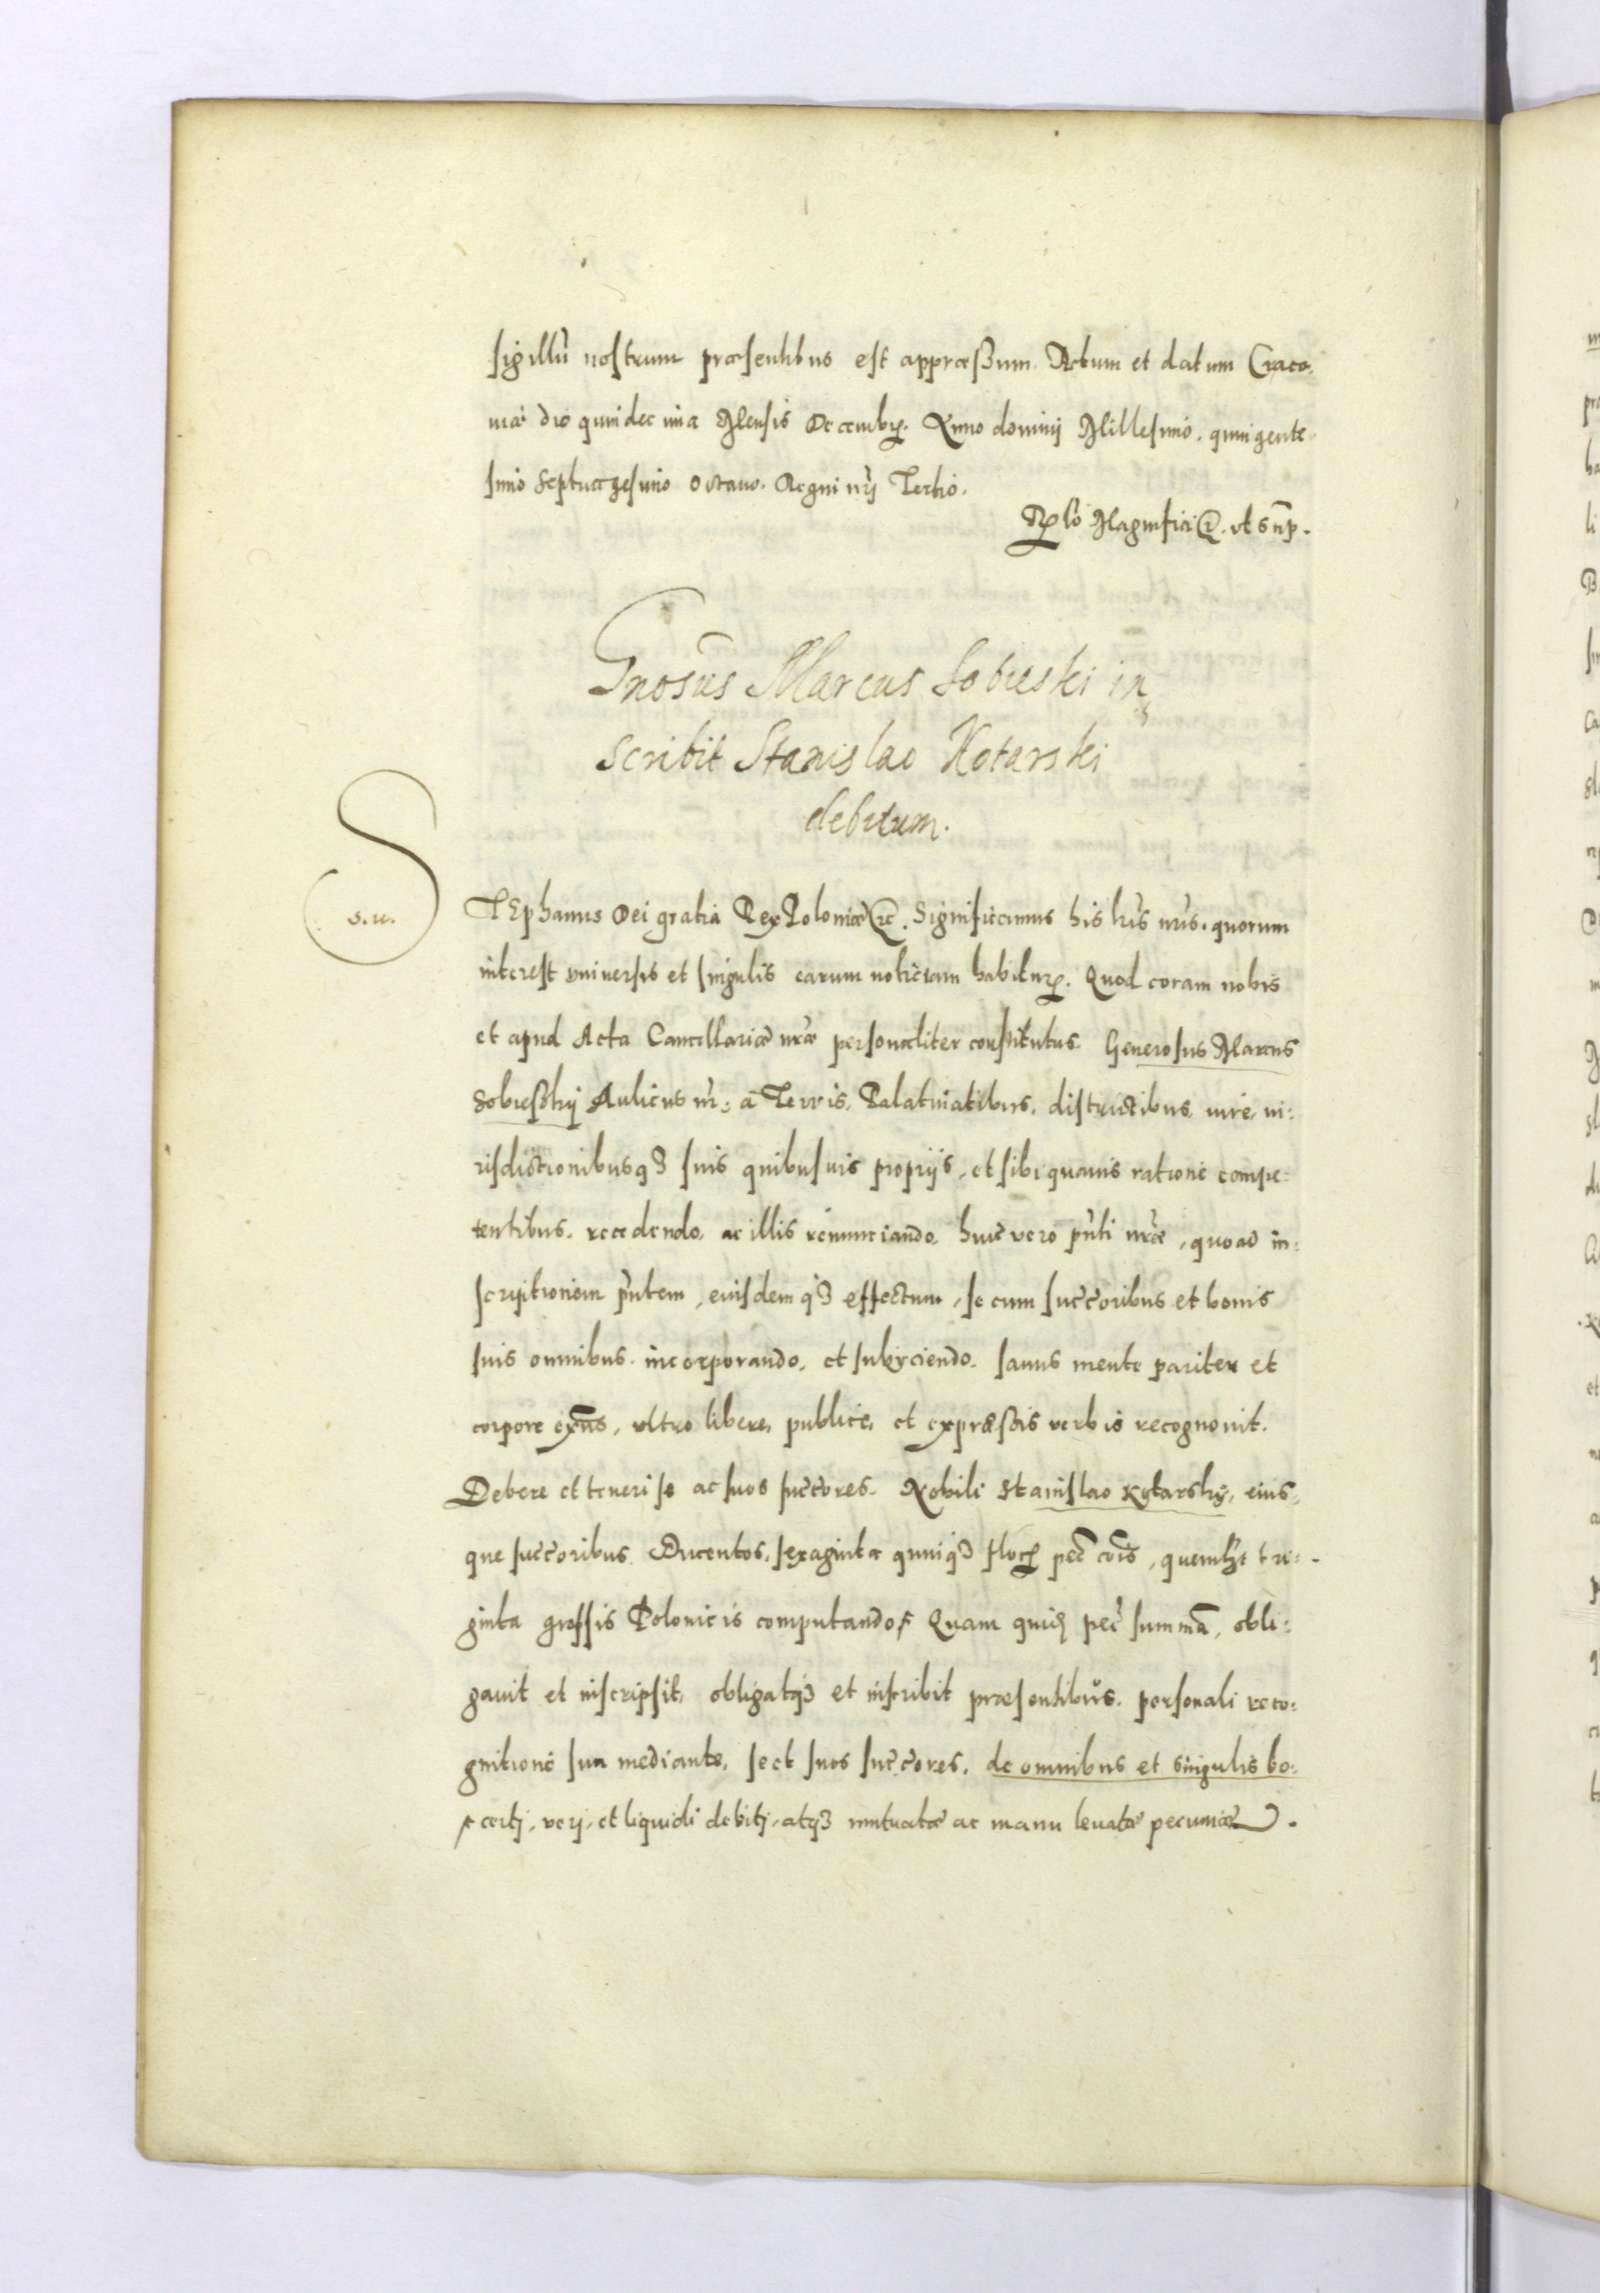 sigillū nostrum præsentibus est appræssum. Actum et datum Craco-
uiæ die quindecima Mensis Decembrꝭ. Anno dominij Millesimo. quingente-
simo Septuagesimo octauo. Regni nrj Tertio.
Rlo Magnifici ꝛc. vt sup.
Gnosus Marcus Sobieski in,
scribit Stanislao Kotarski
debitum.
S
s. u.
TEphanus Dei gratia Rex Poloniæ ꝛc. Significamus his lris nris. quorum
interest vniuersis et singulis earum noticiam habiturꝭ. Quod coram nobis
et apud Acta Cancellariæ nræ personaliter constitutus. Generosus Marcus
Sobieskij Aulicus nr, a Terris, Palatinatibus, districtibus, iure, iu-
risdictionibusqꝫ suis quibusuis proprijs, et sibi quauis ratione compe-
tentibus. recedendo, ac illis renunciando, huic vero pnti nræ, quoad in-
scriptionem pntem, eiusdemqꝫ effectum, se cum succoribus et bonis
suis omnibus. incorporando. et subijciendo. sanus mente pariter et
corpore exns, vltro libere, publice, et expræssis verbis recognouit.
Debere et teneri se ac suos succores. Nobili Stanislao Kotarsky, eius-
que succoribus. Ducentos, sexaginta quinqꝫ flocꝭ pec cois, quemlꝫt tri-
ginta grossis Polonicis computando. Quam quid pec summā, obli-
gauit et inscripsit, obligatqꝫ et inscribit præsentibus. personali reco-
gnitione sua mediante, se et suos succores. de omnibus et singulis bo-
certj, verj, et liquidi debitj, atqꝫ mutuatæ ac manu leuatæ pecuniæ.